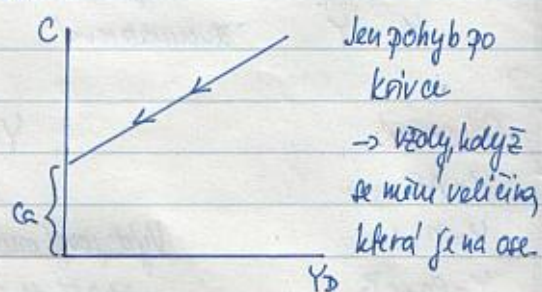 C
Jen pohyb po
křivce
-> vždy, když
se mění veličina,
která je na ose.
Ca
YD